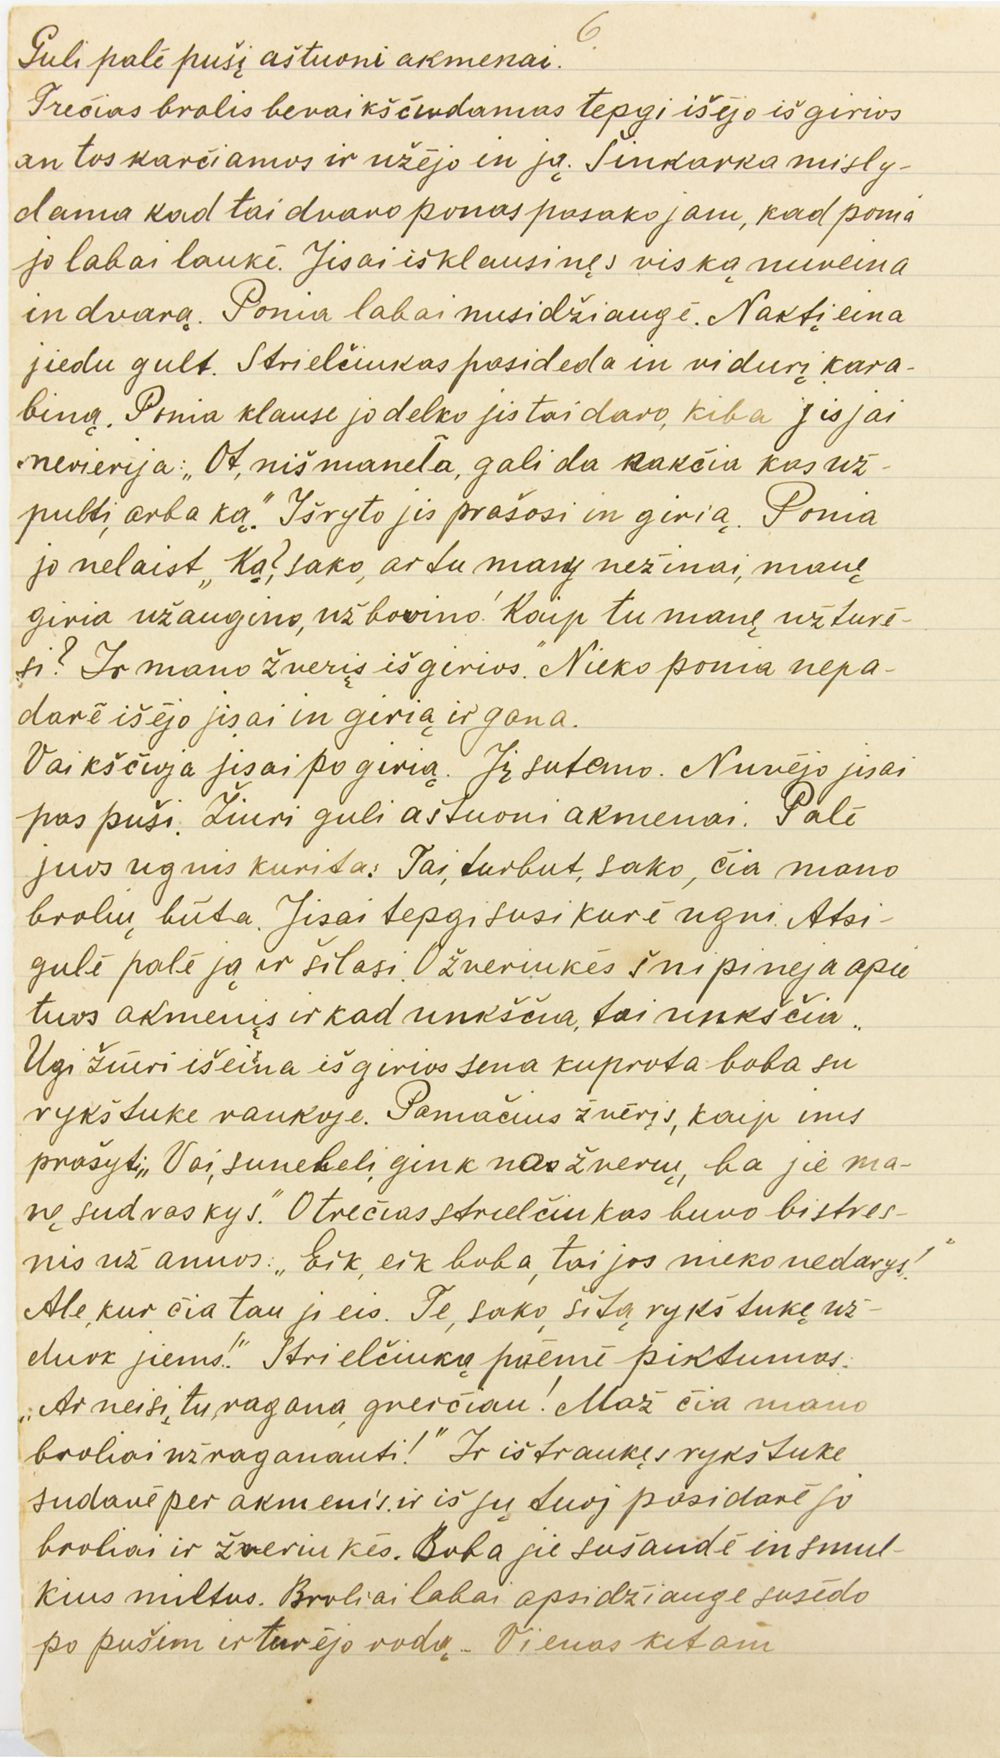 6.
Guli palė pušį aštuoni akmenai.
Trečias brolis bevaikščiodamas tepgi išėjo iš girios
an tos karčiamos ir užėjo in ją. Šinkarka misly-
dama kad tai dvaro ponas pasako jam, kad ponia
jo labai laukė. Jisai išklausinęs viską nuveina
in dvarą. Ponia labai nusidžiaugė. Naktį eina
jiedu gult. Strielčiukas pasideda in vidurį kara-
biną. Ponia klausė jo delko jis tai daro, kiba jis jai
nevierija: „Ot, nišmanėla, gali da nakčia kas už-
pulti, arba ką." Išryto jis prašosi in girią. Ponia
jo nelaist „Ką? sako, ar tu manę nežinai, manę
giria užaugino, užbovino! Kaip tu manę užturė-
si? Ir mano žverįs iš girios." Nieko ponia nepa-
darė išėjo jisai in girią ir gana.
Vaikščioja jisai po girią. Jį sutemo. Nuvėjo jisai
pas puši. Žiuri guli aštuoni akmenai. Palė
juos ugnis kurita: Tai, turbut, sako, čia mano
brolių būta. Jisai tepgi susikurė ugni. Atsi-
gulė palė ją ir šilasi. O žveriukės šnipinėja apie
tuos akmenįs ir kad unkščia, tai unkščia..
Ugi žiūri išeina iš girios sena kuprota boba su
rykštuke rankoje. Pamačius žvėrįs, kaip ims
prašyti: „Vai, suneheli, gink nao žverių, ba jie ma-
nę sudraskys." O trečias strielčiukas buvo bistres-
nis už anuos: „Eik, eik boba, tai jos nieko nedarys!"
Ale, kur čia tau ji eis. Te, sako, šitą rykštukę už-
duok jiems!." Strielčiuką paėmė piktumas.
„Ar neisi, tu, ragana, greičiau! Maž čia mano
broliai užragananti!" Ir ištraukęs rykštuke
sudavė per akmenis. ir iš jų tuoj pasidarė jo
broliai ir žveriukės. Boba jie sušaudė in smul-
kius miltus. Broliai labai apsidžiaugė susėdo
po pušim ir turėjo rodą. Vienas kitam